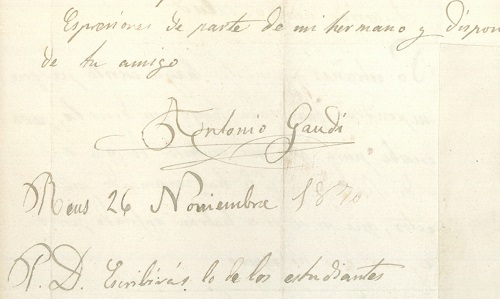 Espresiones de parte de mi hermano y dispon
de tu amigo
Antonio Gaudí
Reus 26 Noviembre 1870
P. D. Escribirás lo de los estudiantes